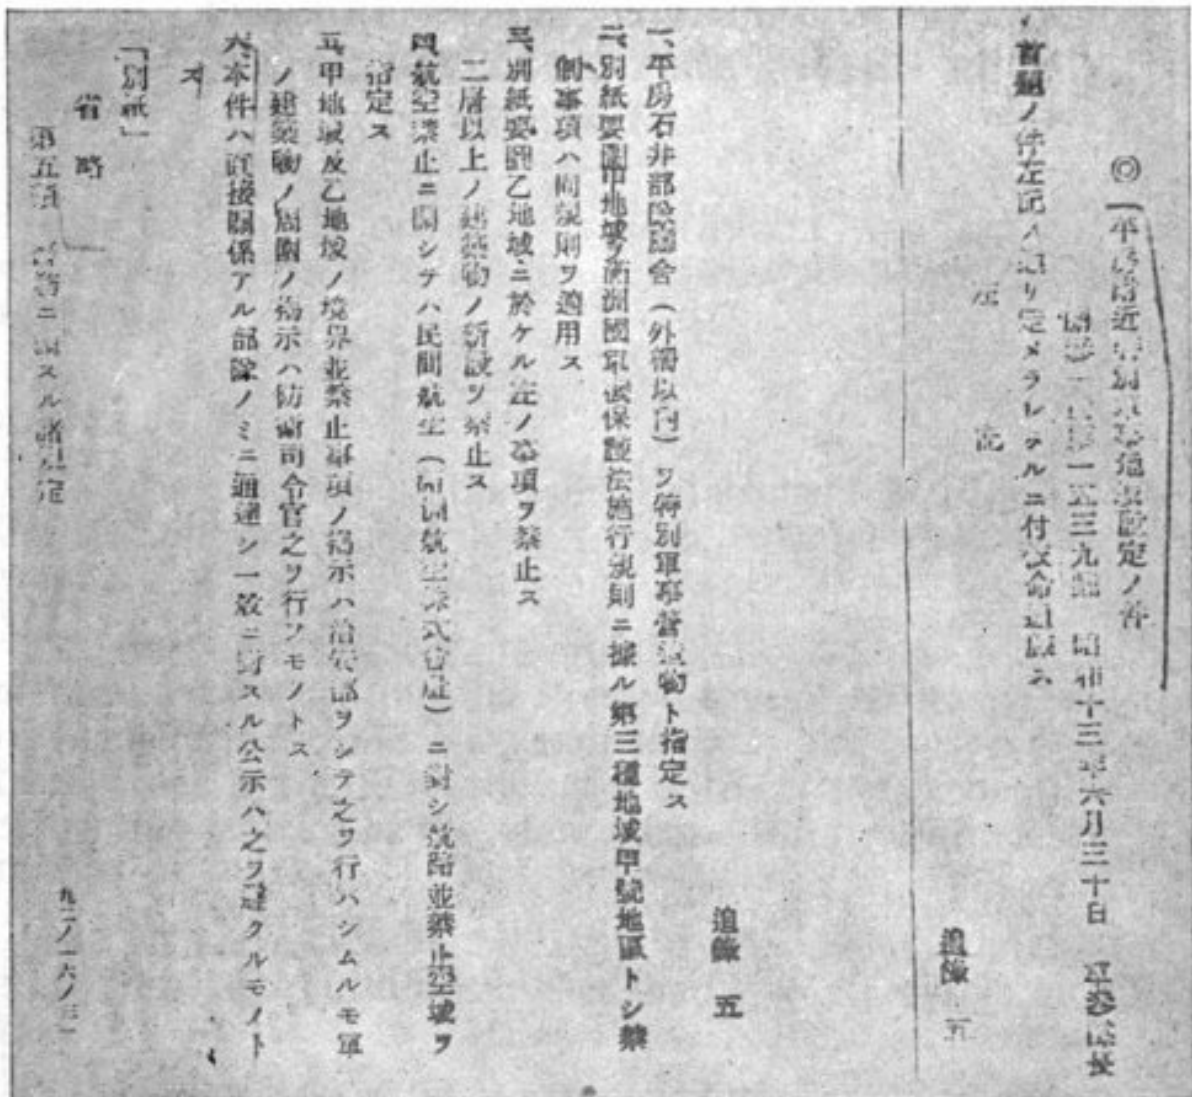 ◎平房附近特別軍事地域設定ノ件
第一五三九號 昭和十三年六月三十日 軍参謀長
首題ノ件左記ノ通リ定メラレタルニ付依命通牒ス
左記
追錄 五
追錄 五
一、平房石井部隊廳舍(外柵以內)ヲ特別軍事營造物ト指定ス
二、別紙要圖甲地域ヲ滿洲國軍機保護法施行規則ニ據ル第三種地域甲號地區トシ禁
制事項ハ同規則ヲ適用ス
三、別紙要圖乙地域ニ於ケル左ノ事項ヲ禁止ス
二層以上ノ建築物ノ新設ヲ禁止ス
四、航空禁止ニ關シテハ民間航空(滿洲航空株式會社)ニ對シ航路並禁止空域ヲ
指定ス
五、甲地域及乙地域ノ境界並禁止事項ノ揭示ハ治安部ヲシテ之ヲ行ハシムルモ軍
ノ建築物ノ周圍ノ揭示ハ防衞司令官之ヲ行フモノトス
六、本件ハ直接關係アル部隊ノミニ通達シ一般ニ對スル公示ハ之ヲ避クルモノト
ス
「別紙」
省略
第五 ニ關スル諸規定
九二ノ一六ノ三